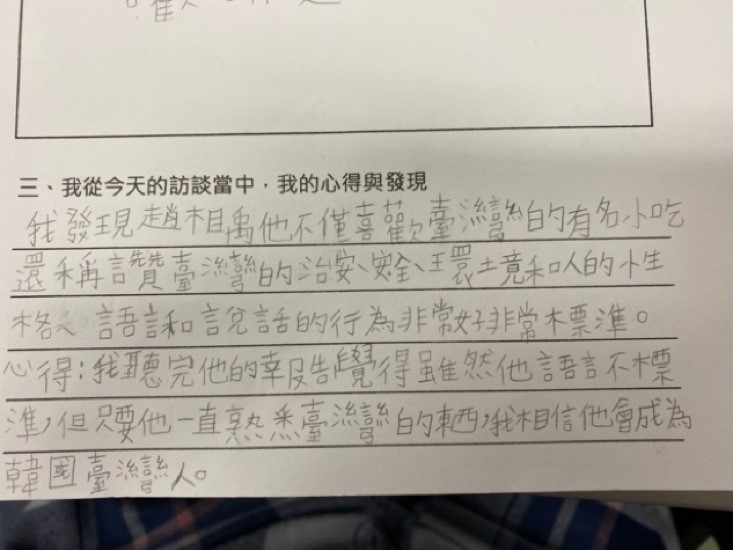 三、我從今天的訪談當中，我的心得與發現
我發現趙相禹他不僅喜歡臺灣的有名小吃
還稱讚臺灣的治安、安全、環境和人的性
格、語言和說話的行為非常好非常標準。
心得：我聽完他的報告覺得雖然他語言不標
準，但只要他一直熟悉臺灣的東西，我相信他會成為
韓國臺灣人。